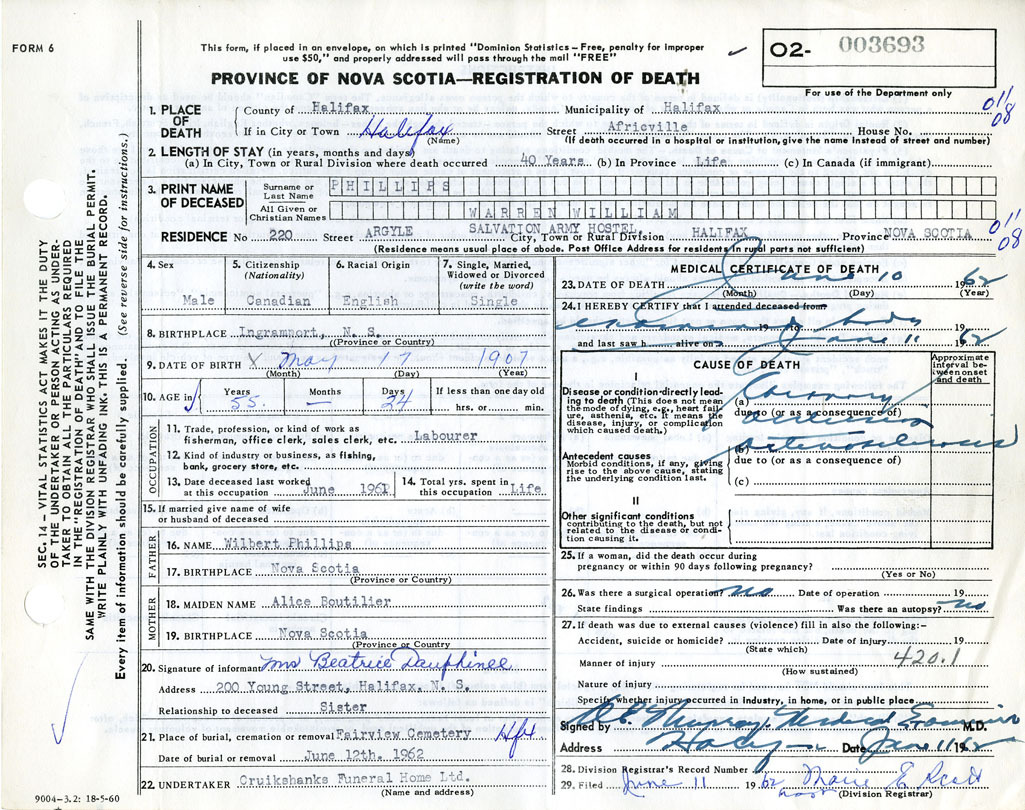 FORM 6
This form, if placed in an envelope, on which is printed "Dominion Statistics – Free, penalty for improper
use $50," and properly addressed will pass through the mail "FREE"
02- 003693
For use of the Department only
PROVINCE OF NOVA SCOTIA—REGISTRATION OF DEATH
011
08
1. PLACE OF DEATH
County of Halifax Municipality of Halifax
If in City or Town Halifax Street Africville House No.
(Name) (If death occurred in a hospital or institution, give the name instead of street and number)
2. LENGTH OF STAY (in years, months and days)
(a) In City, Town or Rural Division where death occurred 40 Years (b) In Province Life (c) In Canada (if immigrant)
3. PRINT NAME OF DECEASED
Surname or Last Name PHILLIPS
All Given or Christian Names WARREN WILLIAM
011
08
RESIDENCE No 220 Street ARGYLE SALVATION ARMY HOSTEL, City, Town or Rural Division HALIFAX Province NOVA SCOTIA
(Residence means usual place of abode. Post Office Address for residents rural parts not sufficient)
4. Sex
Male
5. Citizenship
(Nationality)
Canadian
6. Racial Origin
English
7. Single, Married,
Widowed or Divorced
(write the word)
Single
8. BIRTHPLACE Ingramport, N. S.
(Province or Country)
9. DATE OF BIRTH X May 17 1907
(Month) (Day) (Year)
10. AGE in
Years 55
Months —
Days 24
If less than one day old
hrs. or min.
OCCUPATION
11. Trade, profession, or kind of work as
fisherman, office clerk, sales clerk, etc. Labourer
12. Kind of industry or business, as fishing,
bank, grocery store, etc.
13. Date deceased last worked
at this occupation June 1961
14. Total yrs. spent in
this occupation Life
15. If married give name of wife
or husband of deceased
FATHER
16. NAME Wilbert Phillips
17. BIRTHPLACE Nova Scotia
(Province or Country)
MOTHER
18. MAIDEN NAME Alice Boutilier
19. BIRTHPLACE Nova Scotia
(Province or Country
20. Signature of informant Mrs Beatrice Dauphinee
Address 200 Young Street, Halifax, N. S.
Relationship to deceased Sister
21. Place of burial, cremation or removal Fairview Cemetery Hfx
Date of burial or removal June 12th, 1962
22. UNDERTAKER Cruikshanks Funeral Home Ltd.
(Name and address)
MEDICAL CERTIFICATE OF DEATH
23. DATE OF DEATH June 10 1962
(Month) (Day) (Year)
24. I HEREBY CERTIFY that I attended deceased from
examined 19 to body 19
and last saw h alive on June 11 1962
CAUSE OF DEATH
Approximate
interval be-
tween onset
and death
I
Disease or condition directly lead-
ing to death (This does not mean
the mode of dying, e.g., heart fail-
ure, asthenia, etc. It means the
disease, injury, or complication
which caused death.)
(a) Coronary
due to (or as a consequence of)
(b)
Antecedent causes
Morbid conditions, if any, giving
rise to the above cause, stating
the underlying condition last.
due to (or as a consequence of)
(c)
II
Other significant conditions
contributing to the death, but not
related to the disease or condi-
tion causing it.
25. If a woman, did the death occur during
pregnancy or within 90 days following pregnancy?
(Yes or No)
26. Was there a surgical operation? no Date of operation 19
State findings Was there an autopsy? no
27. If death was due to external causes (violence) fill in also the following:–
Accident, suicide or homicide? Date of injury 19
(State which)
Manner of injury 420.1
(How sustained)
Nature of injury
Specify whether injury occurred in industry, in home, or in public place
Signed by Murray, Medical Examiner M.D.
Address Date June 11 1962
28. Division Registrar's Record Number
29. Filed June 11 1962 Marie E Scott
(Division Registrar)
SEC. 14 – VITAL STATISTICS ACT MAKES IT THE DUTY
OF THE UNDERTAKER OR PERSON ACTING AS UNDER-
TAKER TO OBTAIN ALL THE PARTICULARS REQUIRED
IN THE "REGISTRATION OF DEATH" AND TO FILE THE
SAME WITH THE DIVISION REGISTRAR WHO SHALL ISSUE THE BURIAL PERMIT.
WRITE PLAINLY WITH UNFADING INK. THIS IS A PERMANENT RECORD.
Every item of information should be carefully supplied. (See reverse side for instructions.)
9004–3.2: 18-5-60